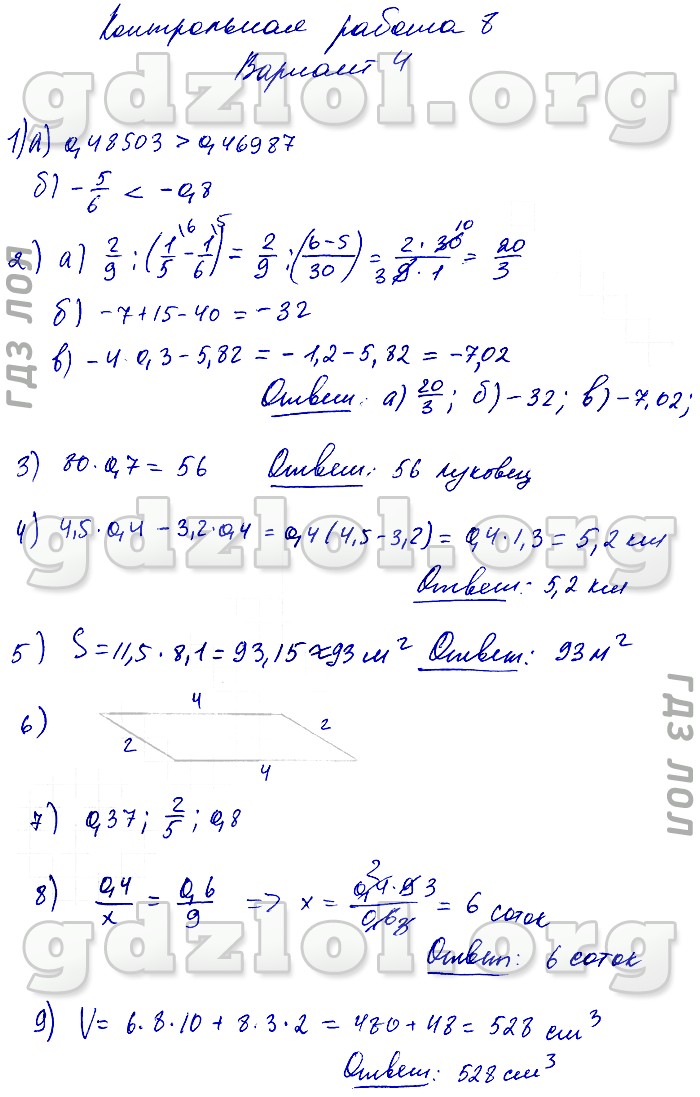 Контрольная работа 8
Вариант 4
gdzlol.org
1) а) 0,48503 > 0,46987
б) -5/6 < -0,8
2) а) 2/9 : (1/5 \6 - 1/6 \5) = 2/9 : ((6-5)/30) = (2 · 30 10)/(3 9 · 1) = 20/3
б) -7+15-40 = -32
в) -4 · 0,3 - 5,82 = -1,2 - 5,82 = -7,02
Ответ: а) 20/3; б) -32; в) -7,02;
ГДЗ ЛОЛ
3) 80 · 0,7 = 56 Ответ: 56 луковец
4) 4,5 · 0,4 - 3,2 · 0,4 = 0,4 (4,5 - 3,2) = 0,4 · 1,3 = 5,2 км
gdzlol.org
Ответ: 5,2 км
5) S = 11,5 · 8,1 = 93,15 ≈ 93 м² Ответ: 93 м²
6) 4 2 2 4
ГДЗ ЛОЛ
7) 0,37; 2/5; 0,8
8) 0,4/x = 0,6/9 => x = (0,4 2 · 9 3)/(0,6) = 6 соток
gdzlol.org
Ответ: 6 соток
9) V = 6 · 8 · 10 + 8 · 3 · 2 = 480 + 48 = 528 см³
Ответ: 528 см³